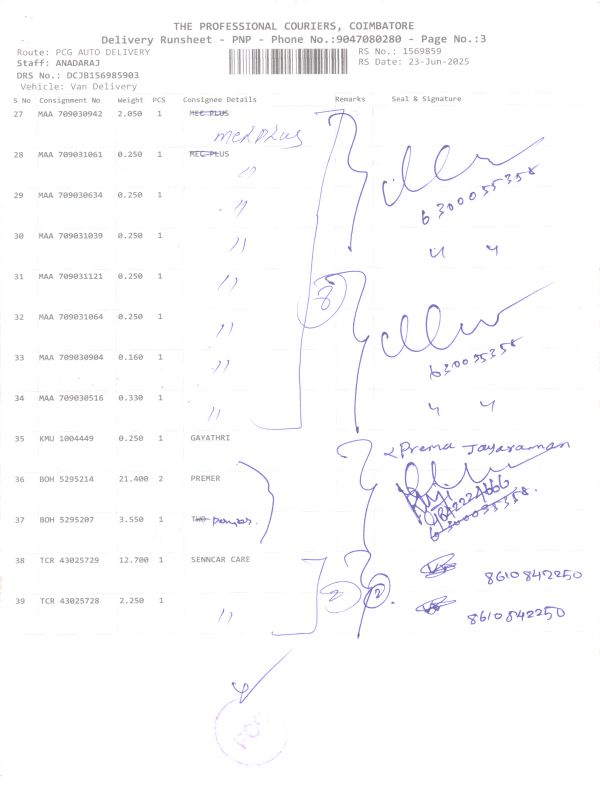 THE PROFESSIONAL COURIERS, COIMBATORE
Delivery Runsheet - PNP - Phone No.:9047080280 - Page No.:3
Route: PCG AUTO DELIVERY RS No.: 1569859
Staff: ANADARAJ RS Date: 23-Jun-2025
DRS No.: DCJB156985903
Vehicle: Van Delivery
S No Consignment No Weight PCS Consignee Details Remarks Seal & Signature
27 MAA 709030942 2.050 1 MEC PLUS
medplus
28 MAA 709031061 0.250 1 MEC PLUS
"
6300055358
29 MAA 709030634 0.250 1
"
30 MAA 709031039 0.250 1
" " "
31 MAA 709031121 0.250 1
" 8
32 MAA 709031064 0.250 1
"
33 MAA 709030904 0.160 1
" 630055358
34 MAA 709030516 0.330 1
" " "
35 KMU 1004449 0.250 1 GAYATHRI
Prema Jayaraman
36 BOH 5295214 21.400 2 PREMER
37 BOH 5295207 3.550 1 TWO
6300055358.
38 TCR 43025729 12.700 1 SENNCAR CARE
8610842250
2 2
39 TCR 43025728 2.250 1
" 8610842250